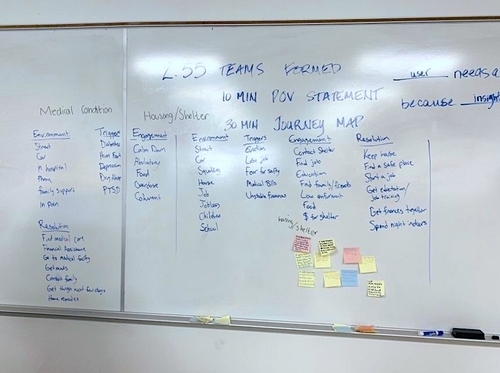 2:55 TEAMS FORMED
10 MIN POV STATEMENT
30 MIN JOURNEY MAP
user needs a
because insight
Medical Condition
Environment
Street
Car
In hospital
Family support
In pain
Triggers
Diabetes
Depression
PTSD
Resolution
Find medical care
Financial Assistance
Go to medical facility
Get meds
Contact family
Home remedies
Housing/Shelter
Engagement
Calm Down
Ambulance
Food
Environment
Street
Car
Squatting
House
Job
Jobless
Children
School
Triggers
Eviction
Low job
Fear for safety
Medical Bills
Unstable finances
Engagement
Contact Shelter
Find job
Education
Find family/friends
Law enforcement
Food
$ for shelter
Resolution
Keep house
Find a safe place
Start a job
Get education/
job training
Get finances together
Spend night indoors
Housing/Shelter